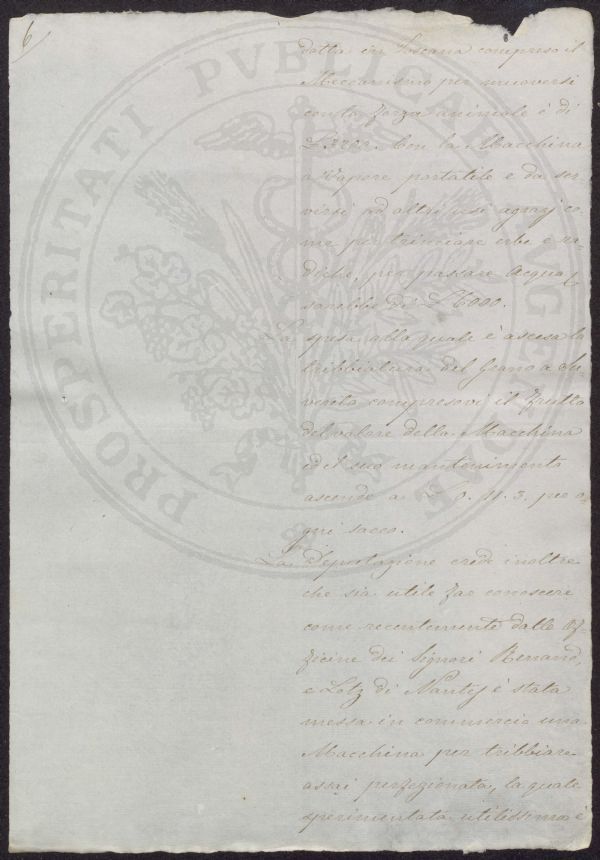 6
dotta in Toscana compreso il
Meccanismo per muoversi
con la forza animale è di
£ 3202. Con la Macchina
a Vapore portatile e da ser
virsi ad altri usi agrarj co-
me per trinciare erbe e ra-
diche, per passare Acqua,
sarebbe di £ 6000.
La spesa alla quale è ascesa la
tribbiatura del Grano a Su-
vereto compresovi il frutto
del valore della Macchina
ed il suo mantenimento
ascende a £ 0. 11. 3. per o-
gni sacco.
La Deputazione crede inoltre
che sia utile far conoscere
come recentemente dalle Of-
ficine dei Signori Renaud,
e Lotz di Nantes è stata
messa in commercio una
Macchina per tribbiare
assai perfezionata, la quale
sperimentata utilissima è
PROSPERITATI PVBLICAE AVGENDAE